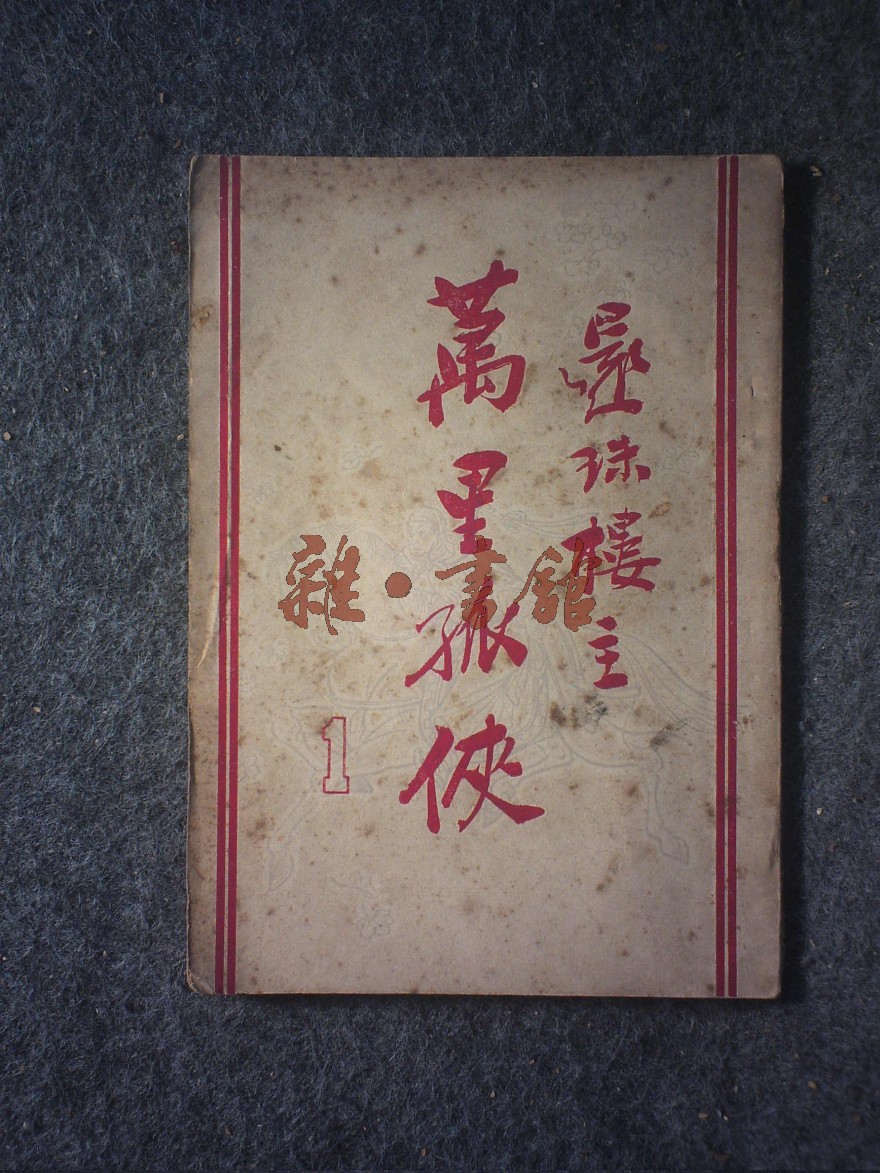 還珠樓主
萬里孤俠
1
雜·書館